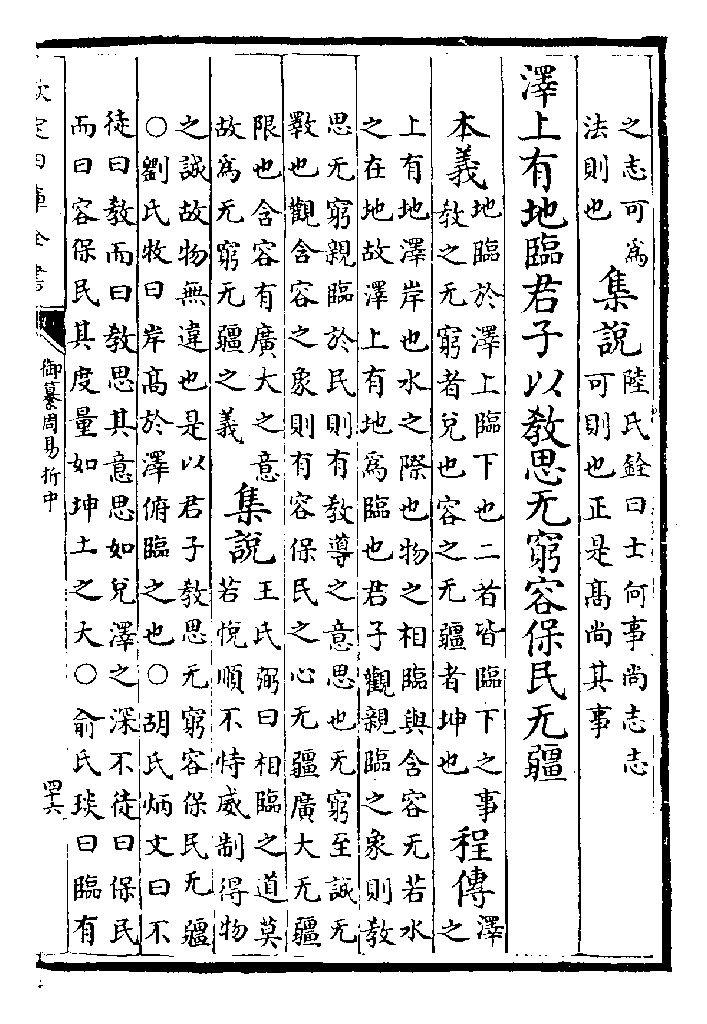 之志可爲
法則也
集說
陸氏銓曰士何事尚志志
可則也正是髙尚其事
澤上有地臨君子以敎思无窮容保民无疆
本義
地臨於澤上臨下也二者皆臨下之事
敎之无窮者兌也容之无疆者坤也
程傳
澤
之
上有地澤岸也水之際也物之相臨與含容无若水
之在地故澤上有地爲臨也君子觀親臨之象則敎
思无窮親臨於民則有敎導之意思也无窮至誠无
斁也觀含容之象則有容保民之心无疆廣大无疆
限也含容有廣大之意
故爲无窮无疆之義
集說
王氏弼曰相臨之道莫
若悅順不恃威制得物
之誠故物無違也是以君子敎思无窮容保民无疆
〇劉氏牧曰岸髙於澤俯臨之也〇胡氏炳文曰不
徒曰敎而曰敎思其意思如兌澤之深不徒曰保民
而曰容保民其度量如坤土之大〇俞氏琰曰臨有
欽定四庫全書
御纂周易折中
四十六